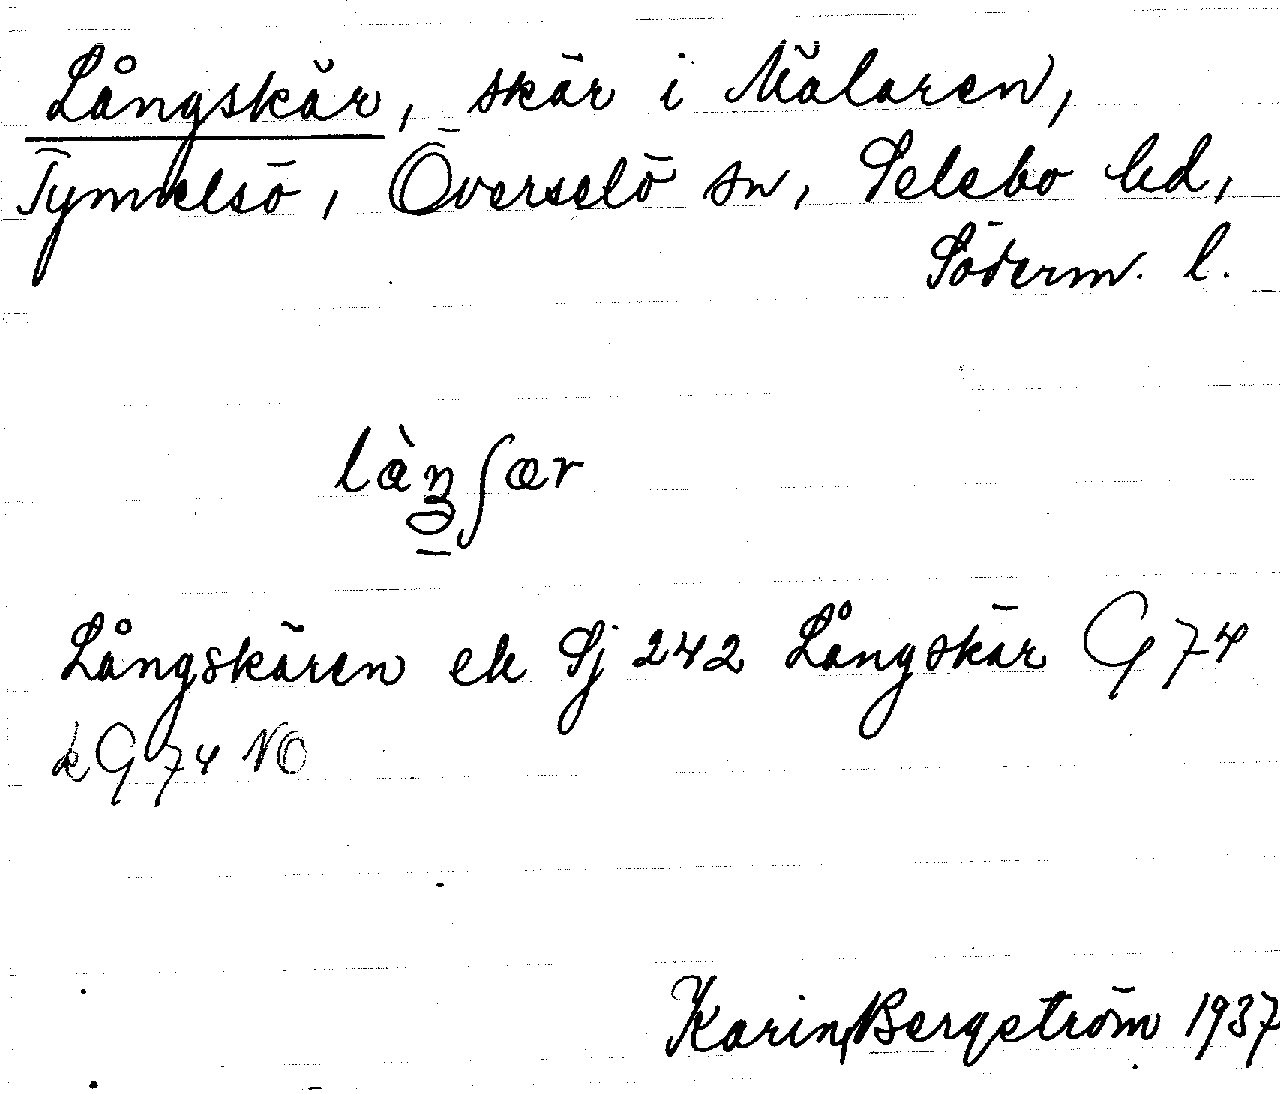 Långskär, skär i Mälaren,
Tynnelsö, Överselö sn, Selebo hd,
Söderm. l.
làŋʃær
Långskären ek Sj 242 Långskär G 74
kG 74 NO
Karin Bergström 1937